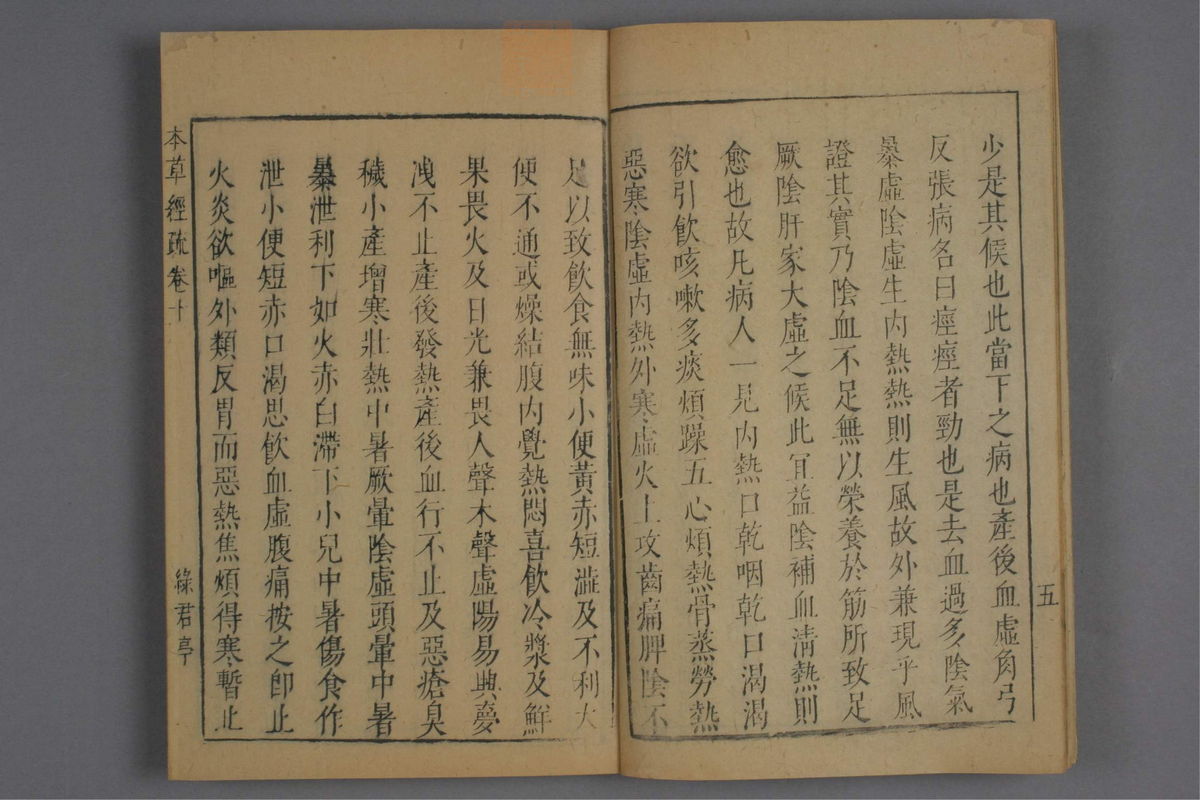 少是其候也此當下之病也產後血虛角弓
反張病名曰痙痙者勁也是去血過多陰氣
暴虛陰虛生內熱熱則生風故外兼現乎風
證其實乃陰血不足無以榮養於筋所致足
厥陰肝家大虛之候此宜益陰補血淸熱則
愈也故凡病人一見內熱口乾咽乾口渴渴
欲引飲咳嗽多痰煩躁五心煩熱骨蒸勞熱
惡寒陰虛內熱外寒虛火上攻齒痛脾陰不
五
足以致飲食無味小便黃赤短澁及不利大
便不通或燥結腹內覺熱悶喜飲冷漿及鮮
果畏火及日光兼畏人聲木聲虛陽易興夢
洩不止產後發熱產後血行不止及惡瘡臭
穢小產增寒壯熱中暑厥暈陰虛頭暈中暑
暴泄利下如火赤白滯下小兒中暑傷食作
泄小便短赤口渴思飲血虛腹痛按之卽止
火炎欲嘔外類反胃而惡熱焦煩得寒暫止
本草經疏卷十
綠君亭